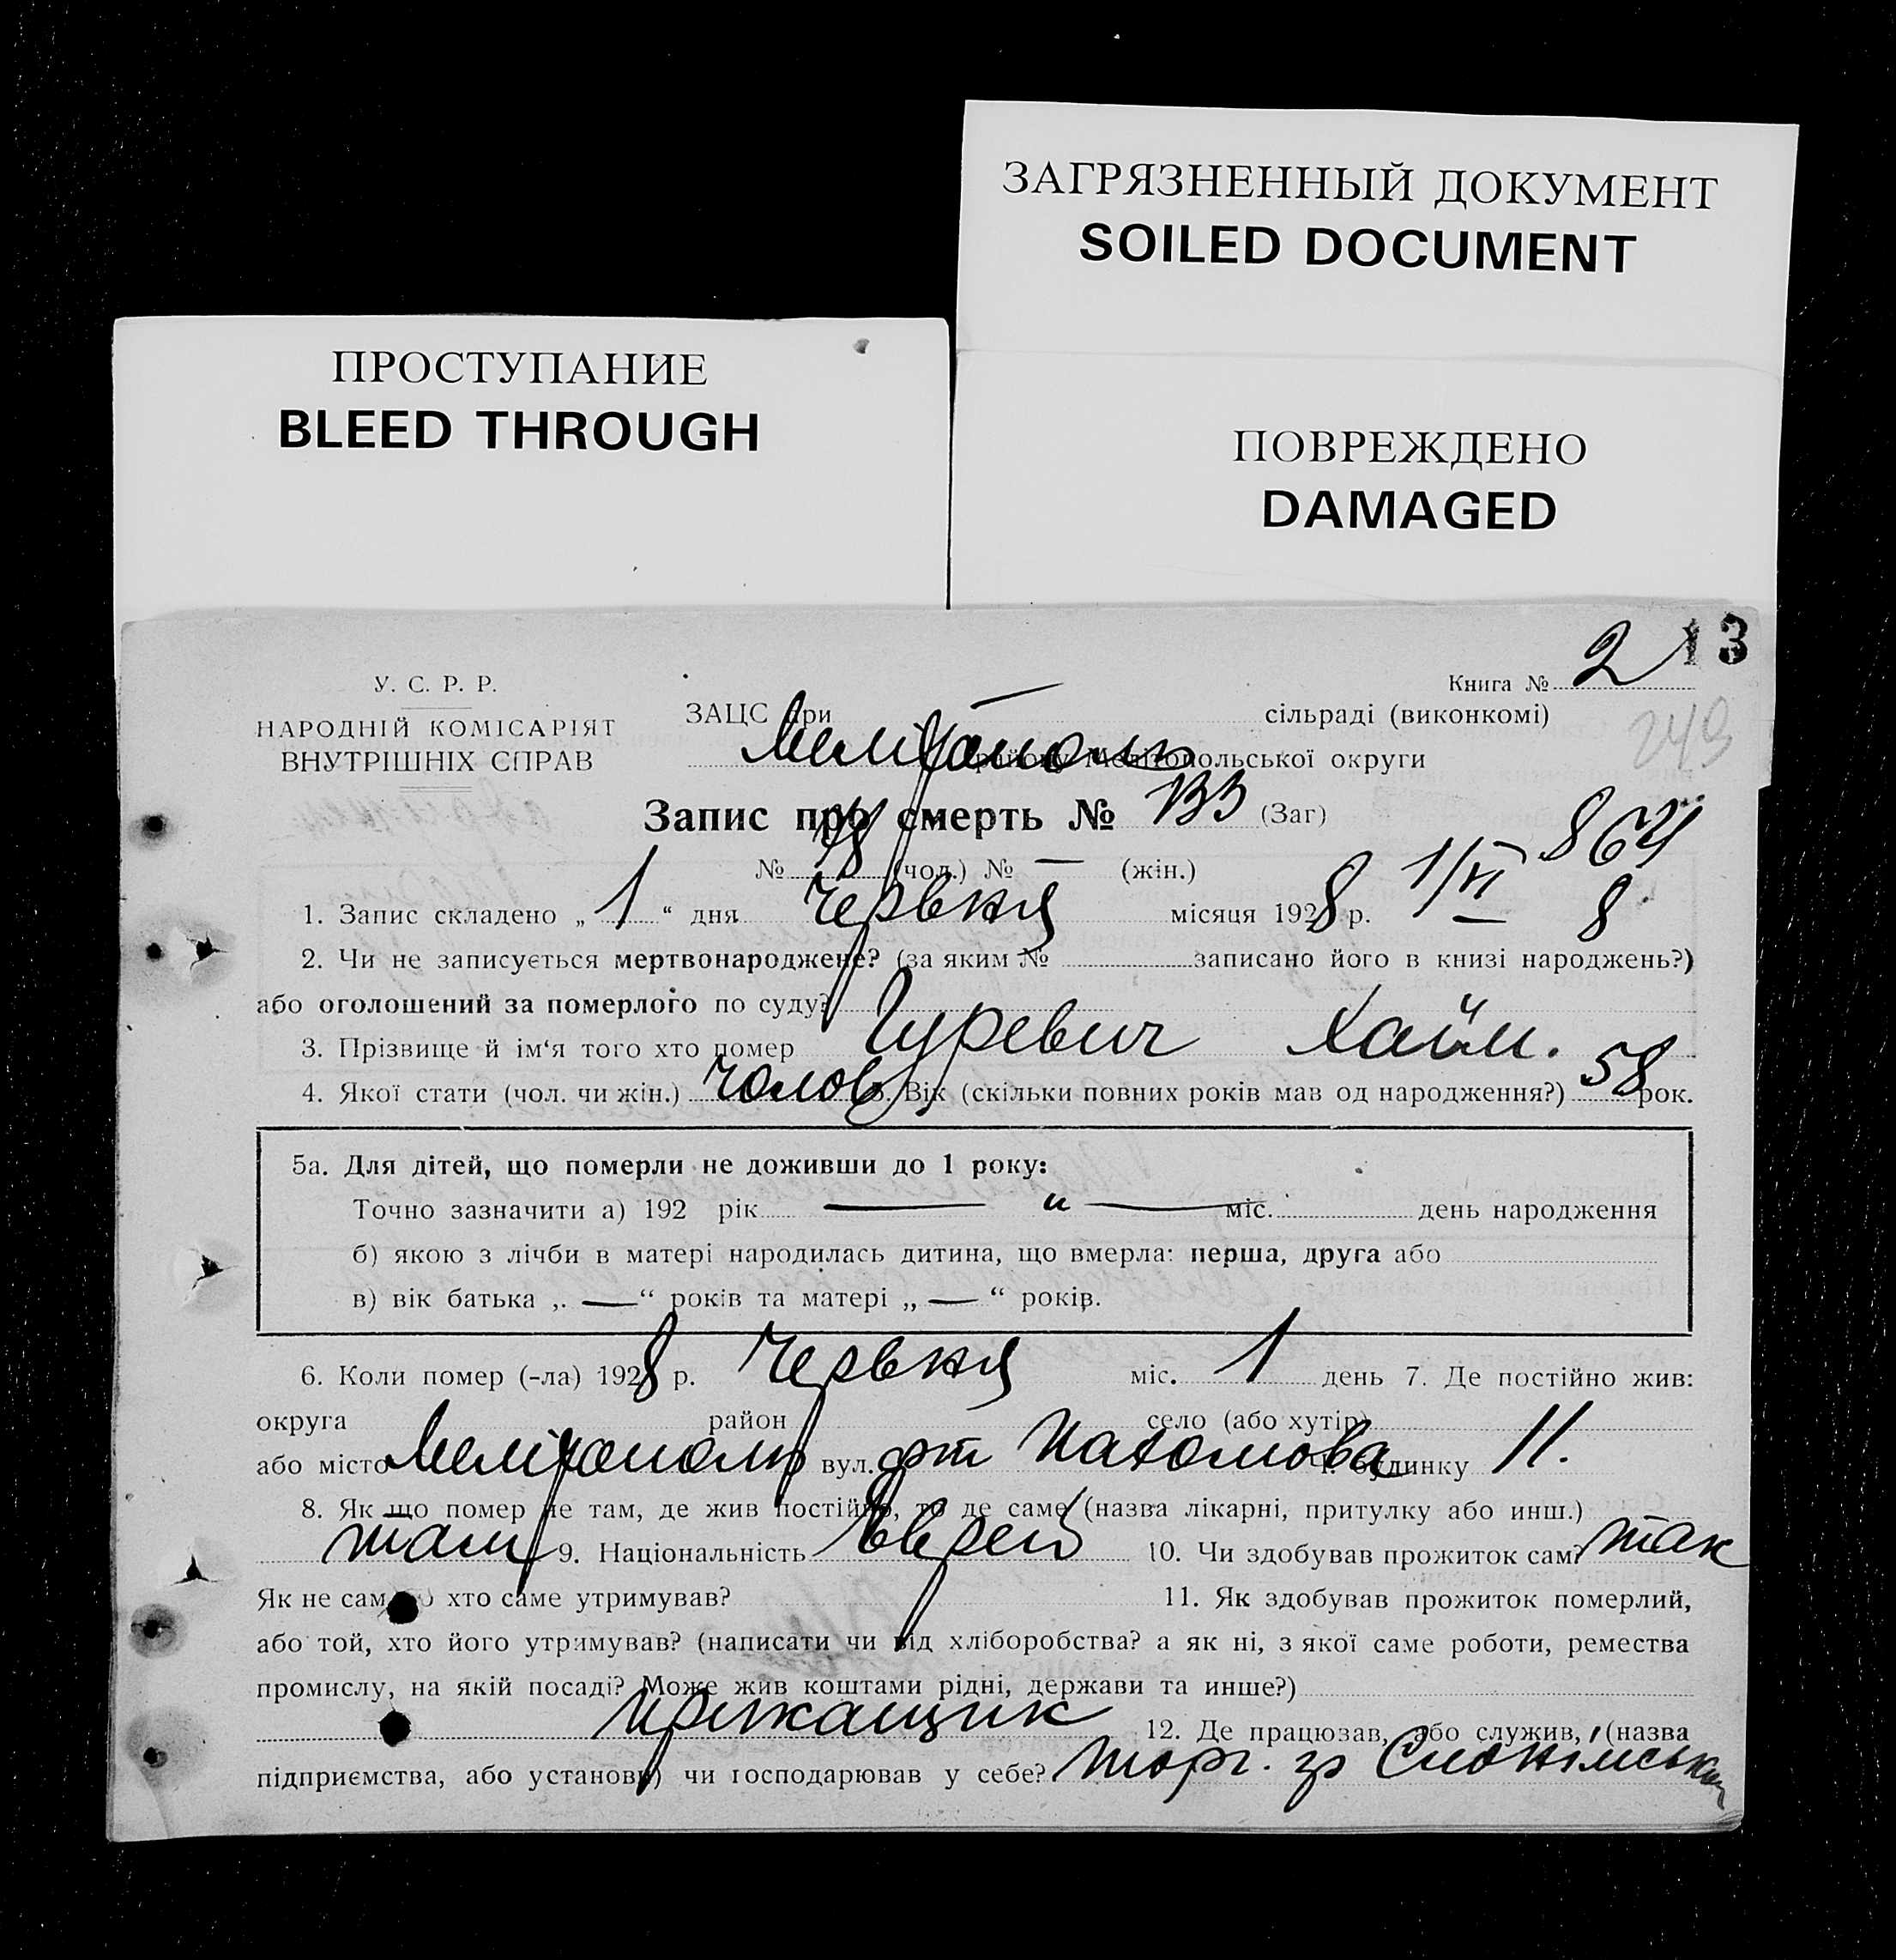 ЗАГРЯЗНЕННЫЙ ДОКУМЕНТ
SOILED DOCUMENT
ПРОСТУПАНИЕ
BLEED THROUGH
ПОВРЕЖДЕНО
DAMAGED
13
У. С. Р. Р.
НАРОДНІЙ КОМІСАРІЯТ
ВНУТРІШНІХ СПРАВ
Книга № 2
249
ЗАЦС при — сільраді (виконкомі)
Мелітополь району Мелітопольської округи
Запис про смерть № 133 (Заг)
№ 78 (чол.) № — (жін.)
864
1/VI 8
1. Запис складено „ 1 “ дня Червня місяця 1928 р.
2. Чи не записується мертвонароджене? (за яким № записано його в книзі народжень?)
або оголошений за померлого по суду?
3. Прізвище й ім‘я того хто помер Гуревич Хаїм.
4. Якої стати (чол. чи жін.) чолов 5. Вік (скільки повних років мав од народження?) 58 рок.
5а. Для дітей, що померли не доживши до 1 року:
Точно зазначити а) 192 рік — „ — міс. день народження
б) якою з лічби в матері народилась дитина, що вмерла: перша, друга або
в) вік батька „ — “ років та матері „ — “ років.
6. Коли помер (-ла) 1928 р. Червня міс. 1 день 7. Де постійно жив:
округа район село (або хутір)
або місто Мелітополь вул. Пахомова Ч. будинку 11.
8. Як що помер не там, де жив постійно, то де саме (назва лікарні, притулку або инш.)
там 9. Національність Еврей 10. Чи здобував прожиток сам? так
Як не сам, то хто саме утримував? 11. Як здобував прожиток померлий,
або той, хто його утримував? (написати чи від хліборобства? а як ні, з якої саме роботи, ремества
промислу, на якій посаді? Може жив коштами рідні, держави та инше?)
Прикащик 12. Де працював, або служив, (назва
підприємства, або установи) чи господарював у себе? торг.